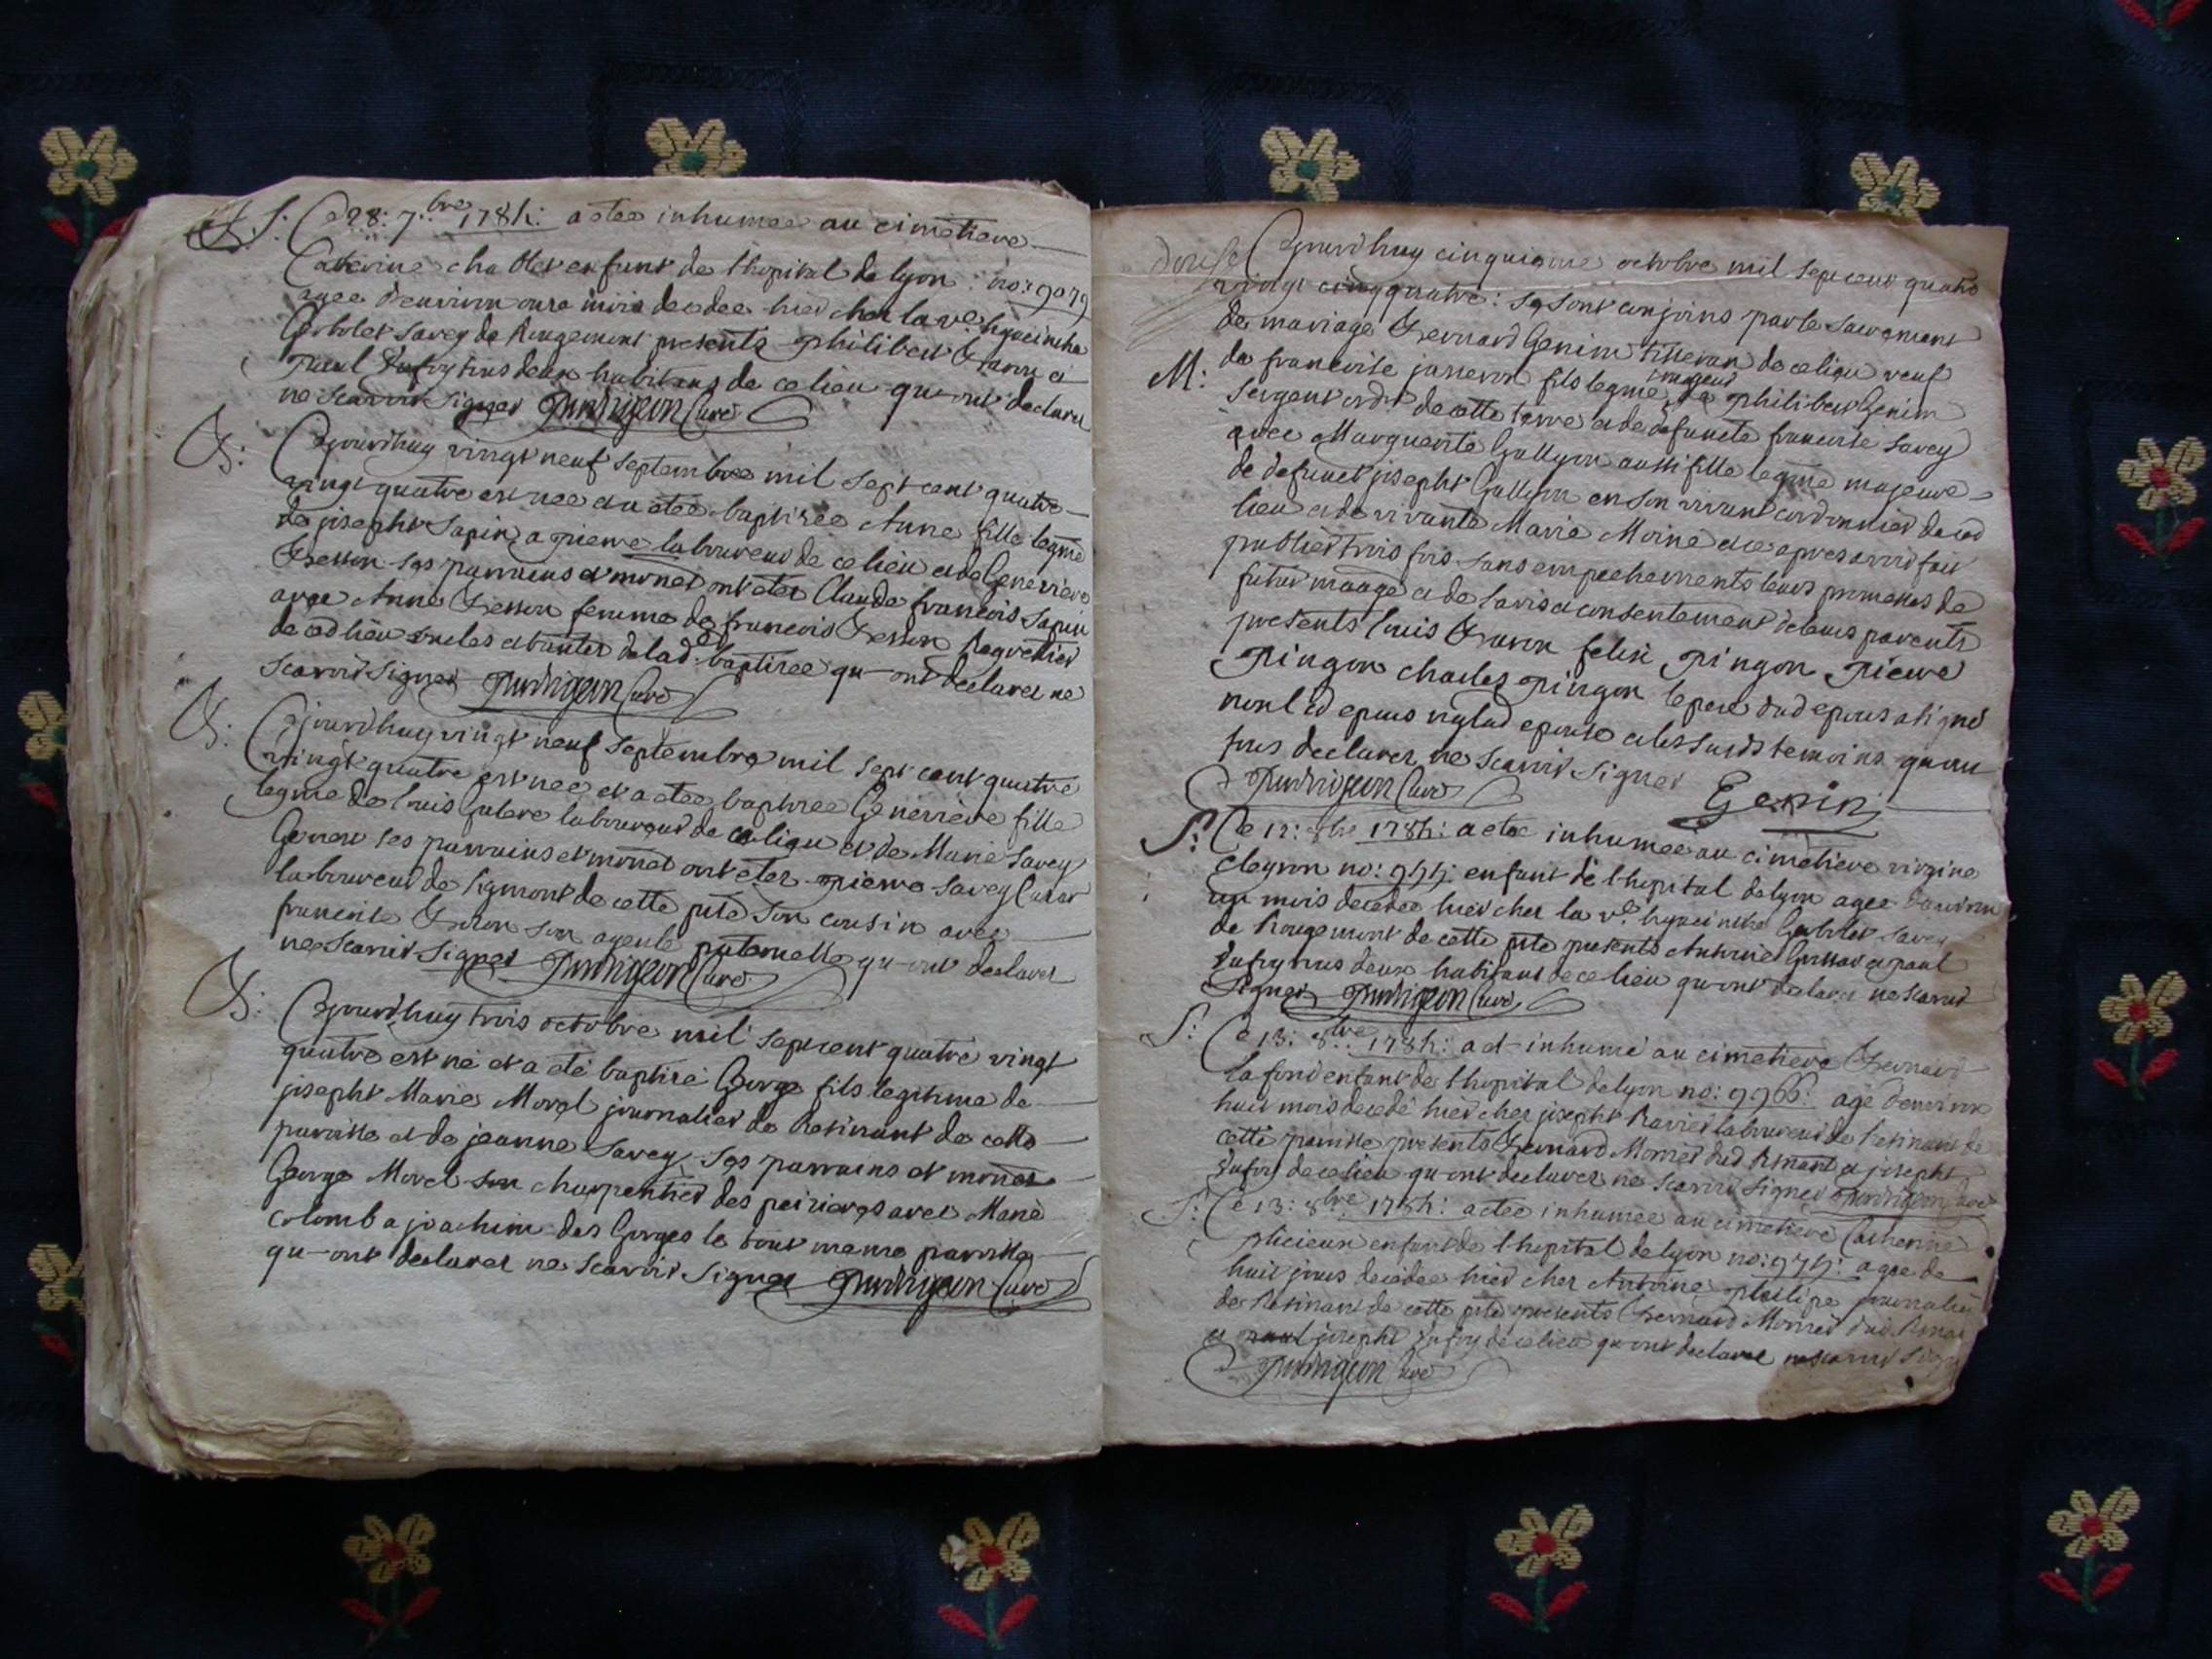 S: Ce 28: 7.bre 1784: a etee inhumee au cimetiere
Caterine enfant de l'hopital de lyon no: 9079
agee d'environ onze mois decedee hier ches la ve. hyacinthe
Gobolet savey de Rougemont presents philibert
paul Dufoy tous deux habitans de ce lieu qu-ont declarer
ne scavoir signer curé
B: Cejourdhuy vingt neuf septembre mil sept cent quatre
vingt quatre est nee et a etee baptisee Anne fille legme
de joseph Sapin a pierre laboureur de ce lieu et de Genevieve
Besson ses parrains et mones ont eter Claude francois Sapin
avec Anne Besson femme de francois Besson
de cedlieu oncles et tantes de lade. baptisee qu-ont declarer ne
scavoir signer curé
B: Cejourdhuy vingt neuf septembre mil sept cent quatre
vingt quatre est nee et a etee baptisee Genevieve fille
legme de louis laboureur de ce lieu et de Marie Savey
ses parrains et mones ont eter pierre savey
laboureur de de cette pse son cousin avec
francoise son ayeule paternelle qu-ont declarer
ne scavoir signer curé
B: Cejourdhuy trois octobre mil sept cent quatre vingt
quatre est né et a eté baptisé George fils legitime de
joseph Marie Morel journalier de Resinant de cette
paroisse et de jeanne Savey ses parrains et mones
George Morel son charpentier des avec Marie
colomb a joachim des Gorges le tout meme paroisse
qu-ont declarer ne scavoir signer curé
douse Cejourdhuy cinquieme octobre mil sept cent quatre
vingt quatre: se sont conjoins par le sacrement
de mariage Bernard Genin tisseran de ce lieu veuf
M: de francoise jasseron fils legme majeur de philibert Genin
sergent ordre. de cette terre et de defuncte francoise savey
avec Marguerite Gullyon aussi fille legme majeure
de defunct joseph Gullyon en son vivant cordonnier de ced
lieu et de vivante Marie Moine et ce apres avoir fait
publier trois fois sans empechements leurs promesses de
futur maage et de l'avis et consentement de leurs parents
presents louis felix pingon pierre
pingon charles pingon le pere dud epoux a signé
non led epoux ny lad epouse et les susds temoins qu-on
tous declarer ne scavoir signer
curé Genin
S: Ce 12: 8bre 1784: a etee inhumee au cimetiere
Cleyron no: enfant de l'hopital de lyon agee d'environ
un mois decedee hier ches la ve. hyacinthe Gobolet savey
de Rougemont de cette pse presents Antoine et paul
dufoy tous deux habitans de ce lieu qu-ont declarer ne scavoir
signer curé
S: Ce 13: 8bre 1784: a eté inhumé au cimetiere Bernard
lafond enfant de l'hopital de lyon no: 9966: agé d'environ
huit mois decedé hier ches joseph Ravier laboureur de Resinant de
cette paroisse presents Bernard Monier dud Rsnant et joseph
dufoy de ce lieu qu-ont declarer ne scavoir signer curé
S: Ce 13: 8bre 1784: a etee inhumee au cimetiere Catherine
enfant de l'hopital de lyon no: agee de
huit jours decedee hier ches Antoine phelipe journalier
de Resinant de cette pse presents Bernard Monier dud
et joseph dufoy de ce lieu qu-ont declarer ne scavoir
curé